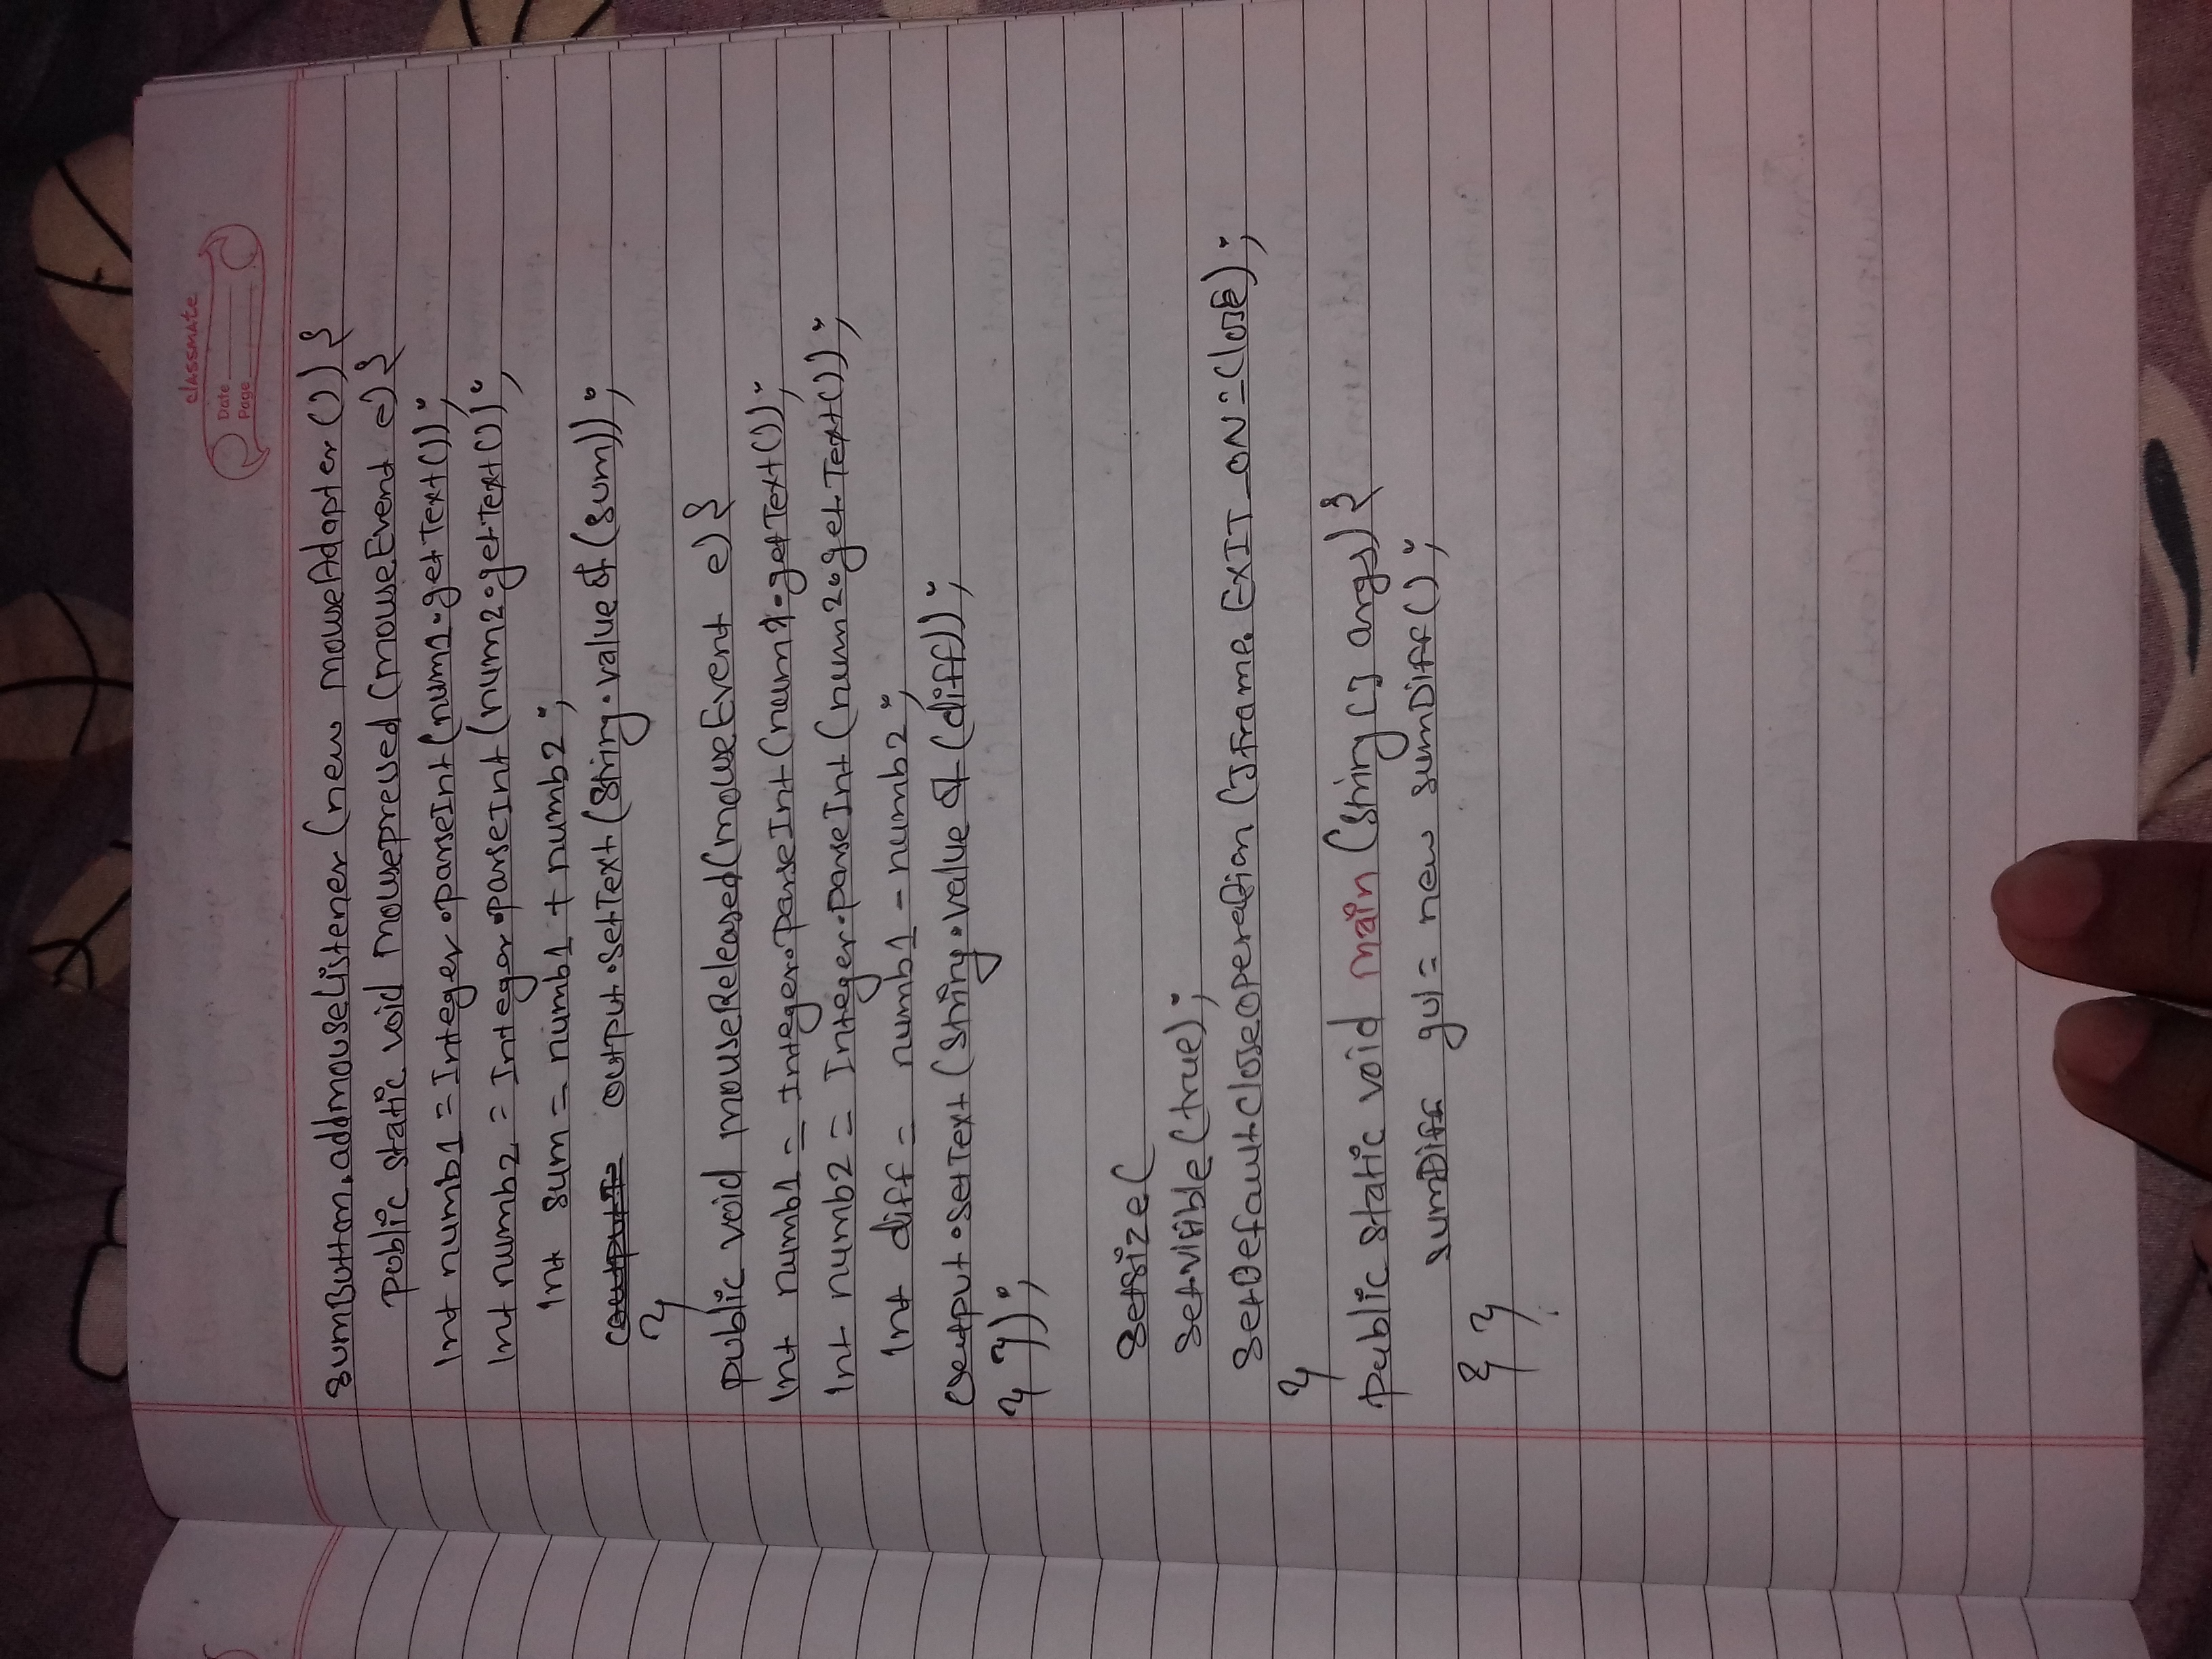 classmate
Date
Page
sumButton.addmouseListener (new mouseAdapter ()) {
public static void mousepressed (mouseEvent e) {
Int numb1 = Integer.parseInt (num1.getText());
Int numb2 = Integer.parseInt (num2.getText());
Int sum = numb1 + numb2 ;
output.setText (String.value of (sum));
}
public void mouseReleased (mouseEvent e) {
Int numb1 = Integer.parseInt (num1.getText());
Int numb2 = Integer.parseInt (num2.getText());
Int diff = numb1 - numb2 ;
Output.setText (String.value of (diff));
} });
Setsize (
SetVisible (true);
SetDefaultCloseOperation (JFrame.EXIT_ON=Close);
}
public static void main (String [] args) {
sumDiff gui = new sumDiff();
} }